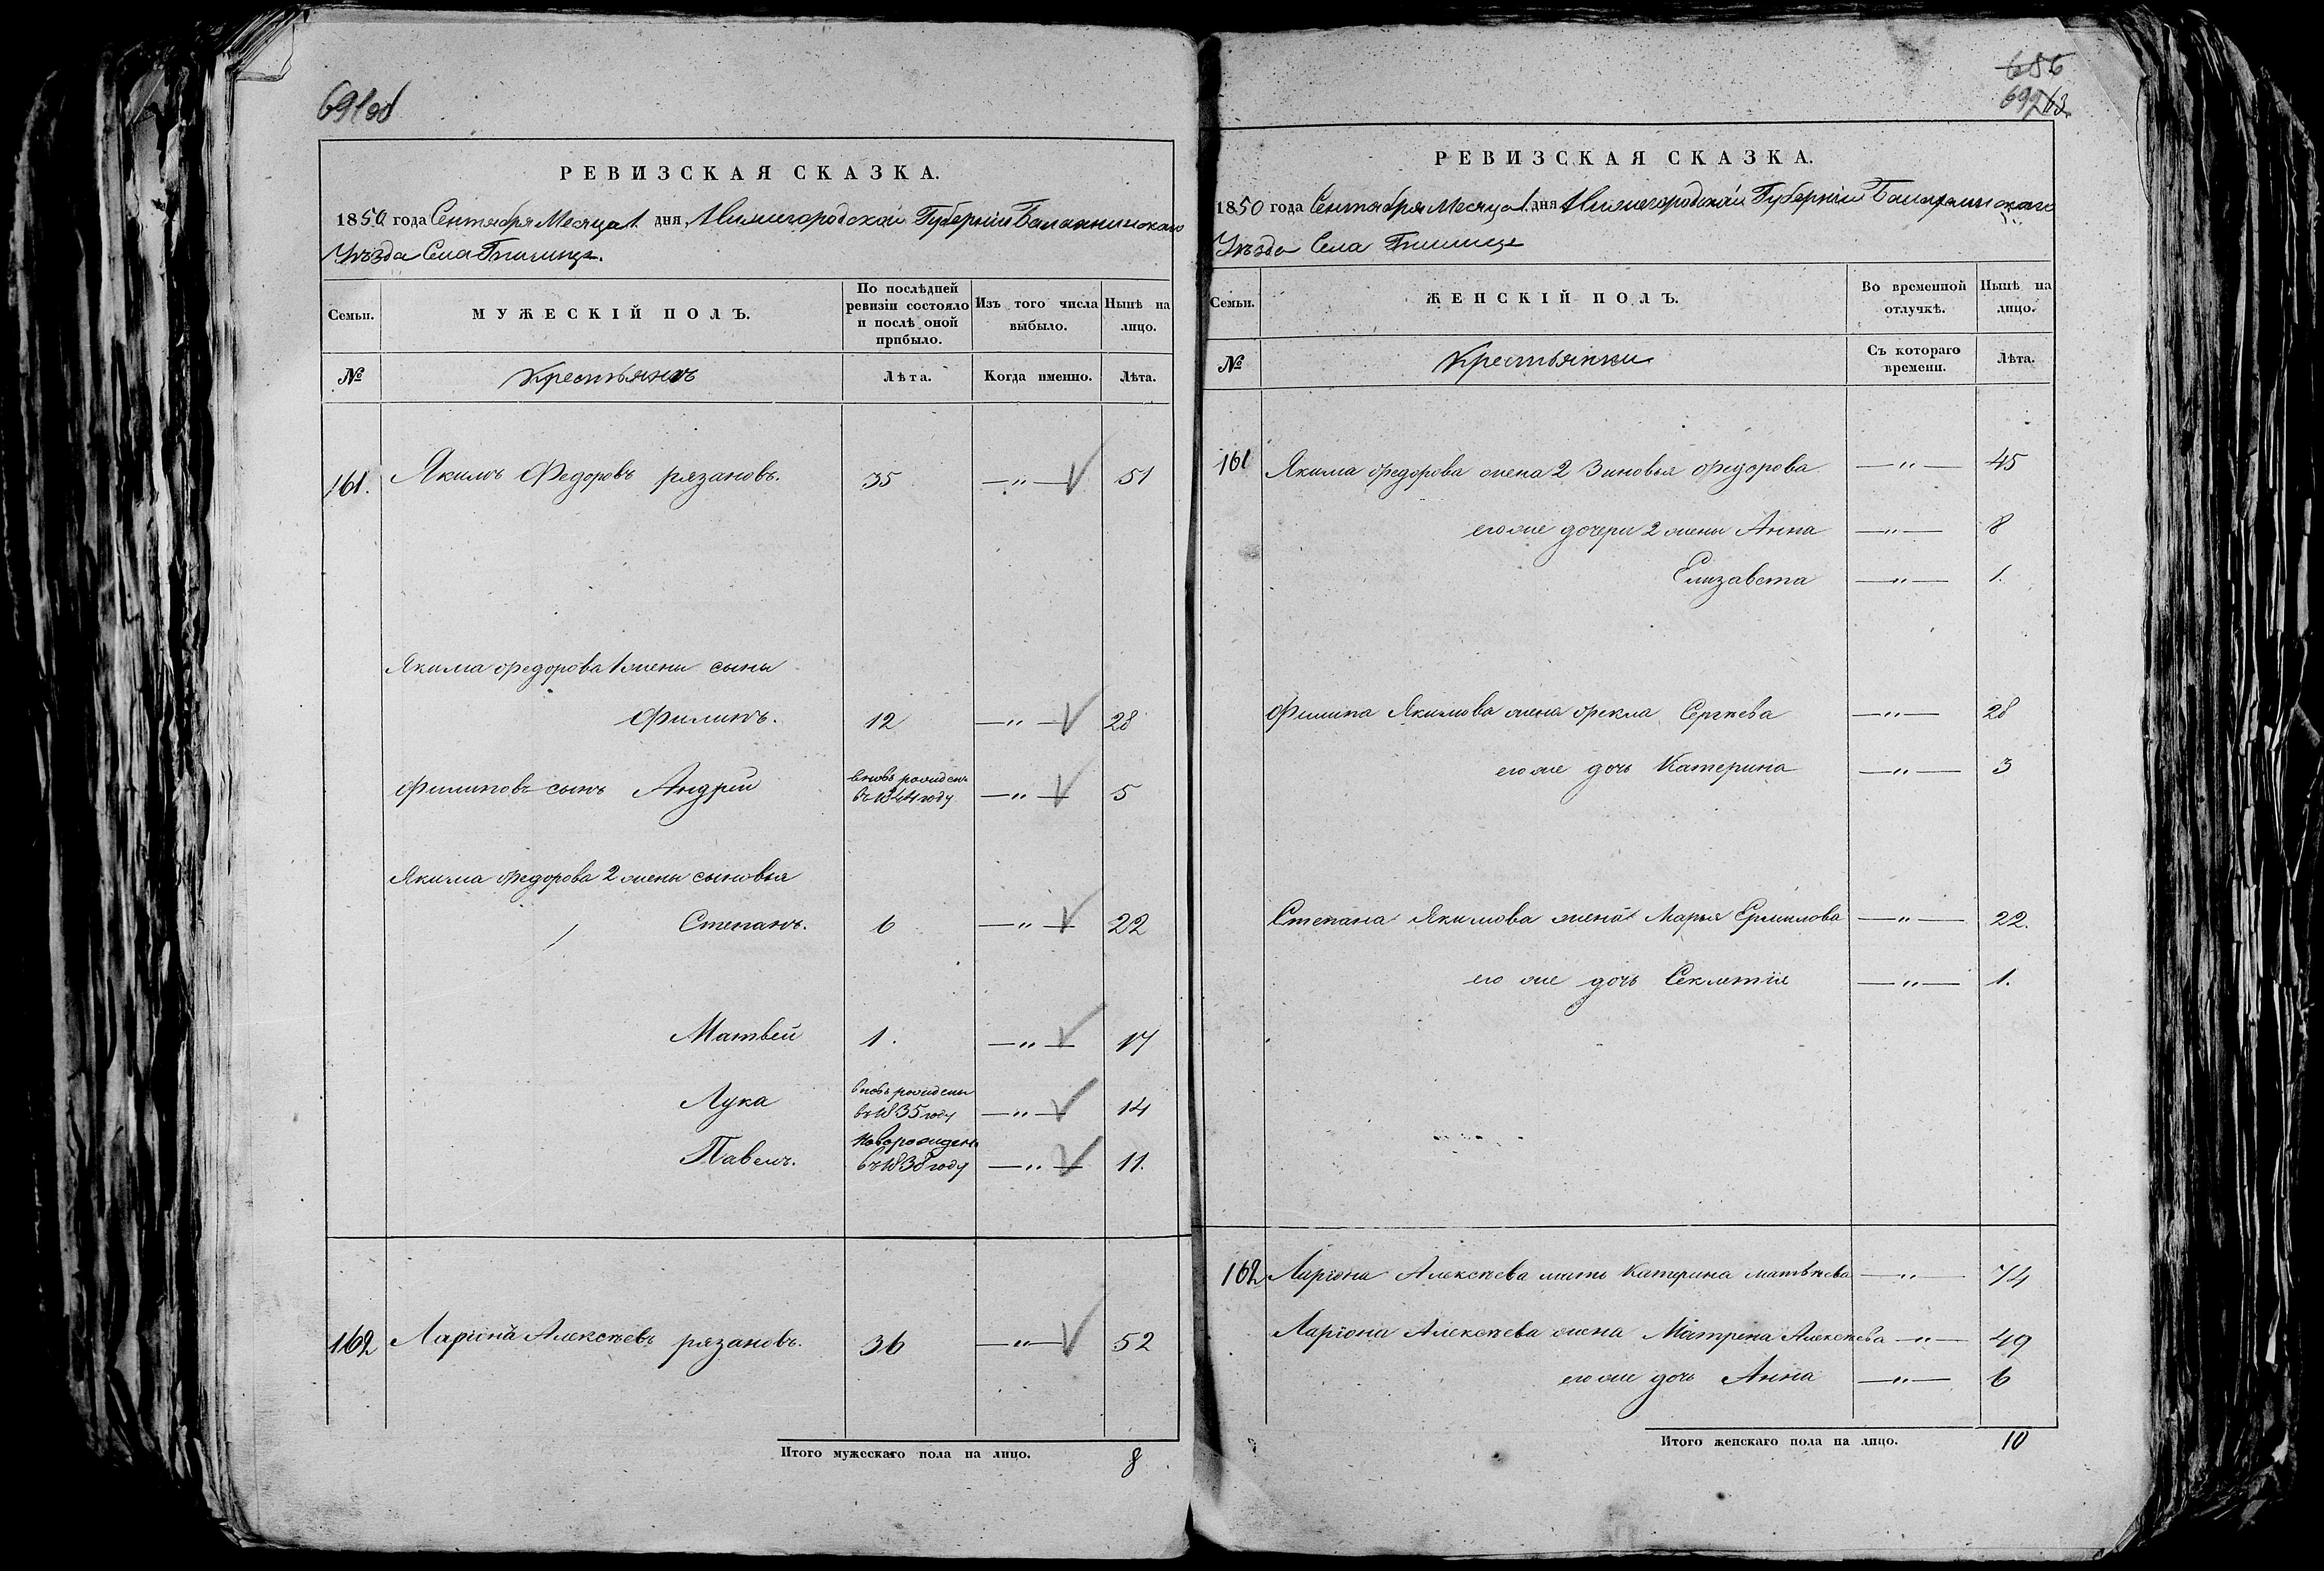 691об
РЕВИЗСКАЯ СКАЗКА.
1850 года Сентября Месяца 1 дня, Нижегородской Губерніи Балахнинскаго
Уѣзда Села
Семьи.
МУЖЕСКІЙ ПОЛЪ.
По послѣдней ревизіи состояло и послѣ оной прибыло.
Изъ того числа выбыло.
Нынѣ на лицо.
№
Крестьянъ
Лѣта.
Когда именно.
Лѣта.
161. Якимъ Федоровъ рязановъ. 35 —"— 51
Якима федорова 1 жены сыны
Филипъ. 12 —"— 28
Филиповъ сынъ Андрей вновь рожденъ въ 1844 году —"— 5
Якима федорова 2 жены сыновья
Степанъ. 6 —"— 22
Матвей 1. —"— 17
Лука вновь рожденъ въ 1835 году —"— 14
Павелъ. новорожденъ въ 1838 году —"— 11.
162 Ларіонъ Алексѣевъ рязановъ. 36 —"— 52
Итого мужескаго пола на лицо. 8
656
692 63
РЕВИЗСКАЯ СКАЗКА.
1850 года Сентября Месяца 1 дня Нижегородской Губерніи Балахнинскаго
Уѣзда Села
Семьи.
ЖЕНСКІЙ ПОЛЪ.
Во временной отлучкѣ.
Нынѣ на лицо.
№
Крестьянки
Съ котораго времени.
Лѣта.
161 Якима федорова жена 2 Зиновья федорова —"— 45
его же дочери 2 жены Анна —"— 8
Елизавета —"— 1.
Филипа Якимова жена фекла Сергѣева —"— 28
его же дочь Катерина —"— 3
Степана Якимова жена Марья Ермилова —"— 22.
его же дочь Секлетія —"— 1.
162 Ларіона Алексѣева мать Катерина матвѣева —"— 74
Ларіона Алексѣева жена Матрена Алексѣева —"— 49
его же дочь Анна —"— 6
Итого женскаго пола на лицо. 10